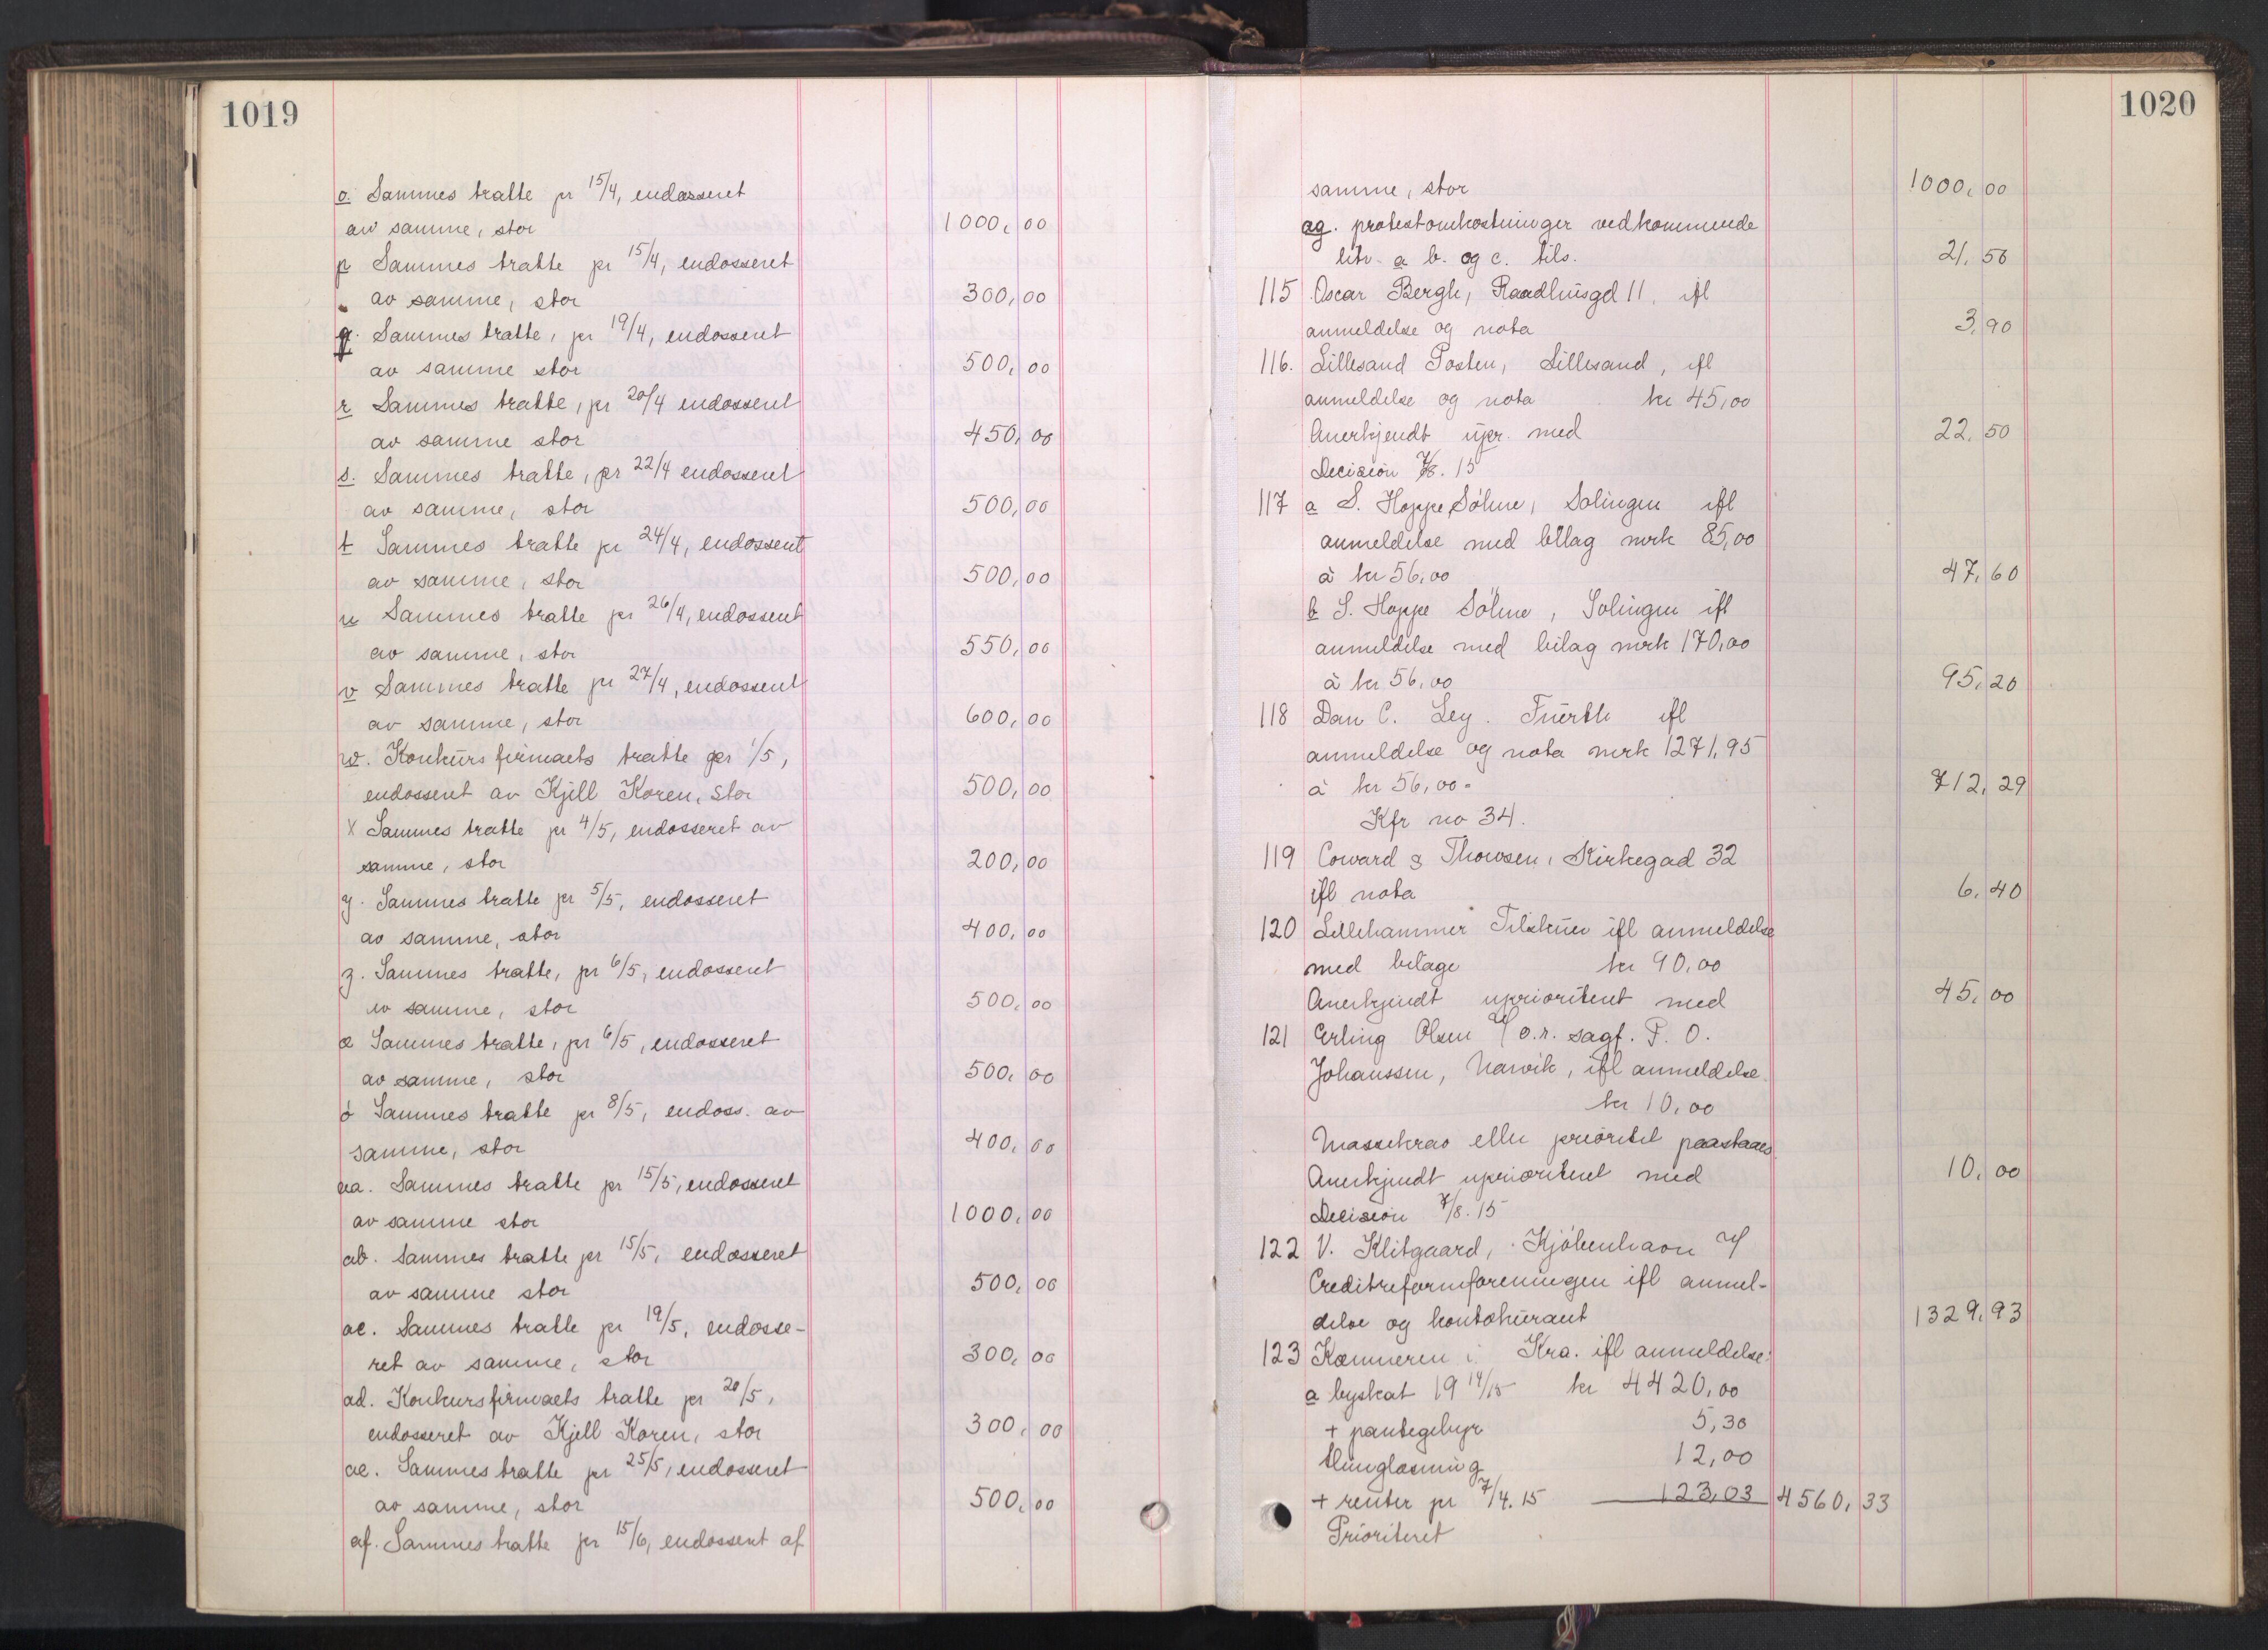 1019
o. Sammes tratte pr 15/4, endosseret
av samme, stor 1000,00
p Sammes tratte pr 15/4, endosseret
av samme, stor 300,00
q. Sammes tratte, pr 19/4, endosseret
av samme stor 500,00
r Sammes tratte, pr 20/4 endosseret
av samme stor 450,00
s. Sammes tratte, pr 22/4 endosseret
av samme, stor 500,00
t Sammes tratte pr 24/4, endosseret
av samme, stor 500,00
u Sammes tratte pr 26/4, endosseret
av samme, stor 550,00
v Sammes tratte pr 27/4, endosseret
av samme, stor 600,00
w. Konkursfirmaets tratte pr 1/5,
endosseret av Kjell Koren, stor 500,00
x Sammes tratte pr 4/5, endosseret av
samme, stor 200,00
y. Sammes tratte pr 5/5, endosseret
av samme, stor 400,00
z. Sammes tratte, pr 6/5, endosseret
av samme, stor 500,00
æ Sammes tratte, pr 6/5, endosseret
av samme, stor 500,00
ö Sammes tratte pr 8/5, endoss. av
samme, stor 400,00
aa. Sammes tratte pr 15/5, endosseret
av samme stor 1000,00
ab. Sammes tratte pr 15/5, endosseret
av samme stor 500,00
ac. Sammes tratte pr 19/5, endosse-
ret av samme, stor 300,00
ad. Konkursfirmaets tratte pr 20/5,
endosseret av Kjell Koren, stor 300,00
ae. Sammes tratte pr 25/5, endosseret
av samme, stor 500,00
af. Sammes tratte pr 15/6, endosseret af
1020
samme, stor 1000,00
ag. protestomkostninger vedkommende
litr. a b. og c. tils. 21,50
115 Oscar Bergh, Raadhusgd 11, ifl
anmeldelse og nota 3,90
116. Lillesand Posten, Lillesand, ifl
anmeldelse og nota kr 45,00
Anerkjendt upr. med 22,50
Decision 7/8. 15
117 a S. Hoppe Söhne, Solingen ifl
anmeldelse med bilag mrk 85,00
à kr 56,00 47,60
b S. Hoppe Söhne, Solingen ifl
anmeldelse med bilag mrk 170,00
à kr 56,00 95,20
118 Dan C. Ley. Fuerth ifl
anmeldelse og nota mrk 1271,95
à kr 56,00. 712,29
Kfr no 34.
119 Coward & Thowsen, Kirkegad 32
ifl nota 6,40
120 Lillehammer Tilskuer ifl anmeldelse
med bilage kr 90,00
Anerkjendt uprioriteret med 45,00
121 Erling Olsen o.r. sagf. P. O.
Johanssen, Narvik, ifl anmeldelse.
kr 10,00
Massekrav eller prioritet paastaaes.
Anerkjendt uprioriteret med 10,00
Decision 7/8. 15
122 V. Klitgaard, Kjöbenhavn
Creditreformforeningen ifl anmel-
delse og kontokurant 1329,93
123 Kæmneren i Kra. ifl anmeldelse:
a byskat 19 14/15 kr 4420,00
+ pantegebyr 5,30
12,00
+ renter pr 7/4. 15 123,03 4560,33
Prioriteret